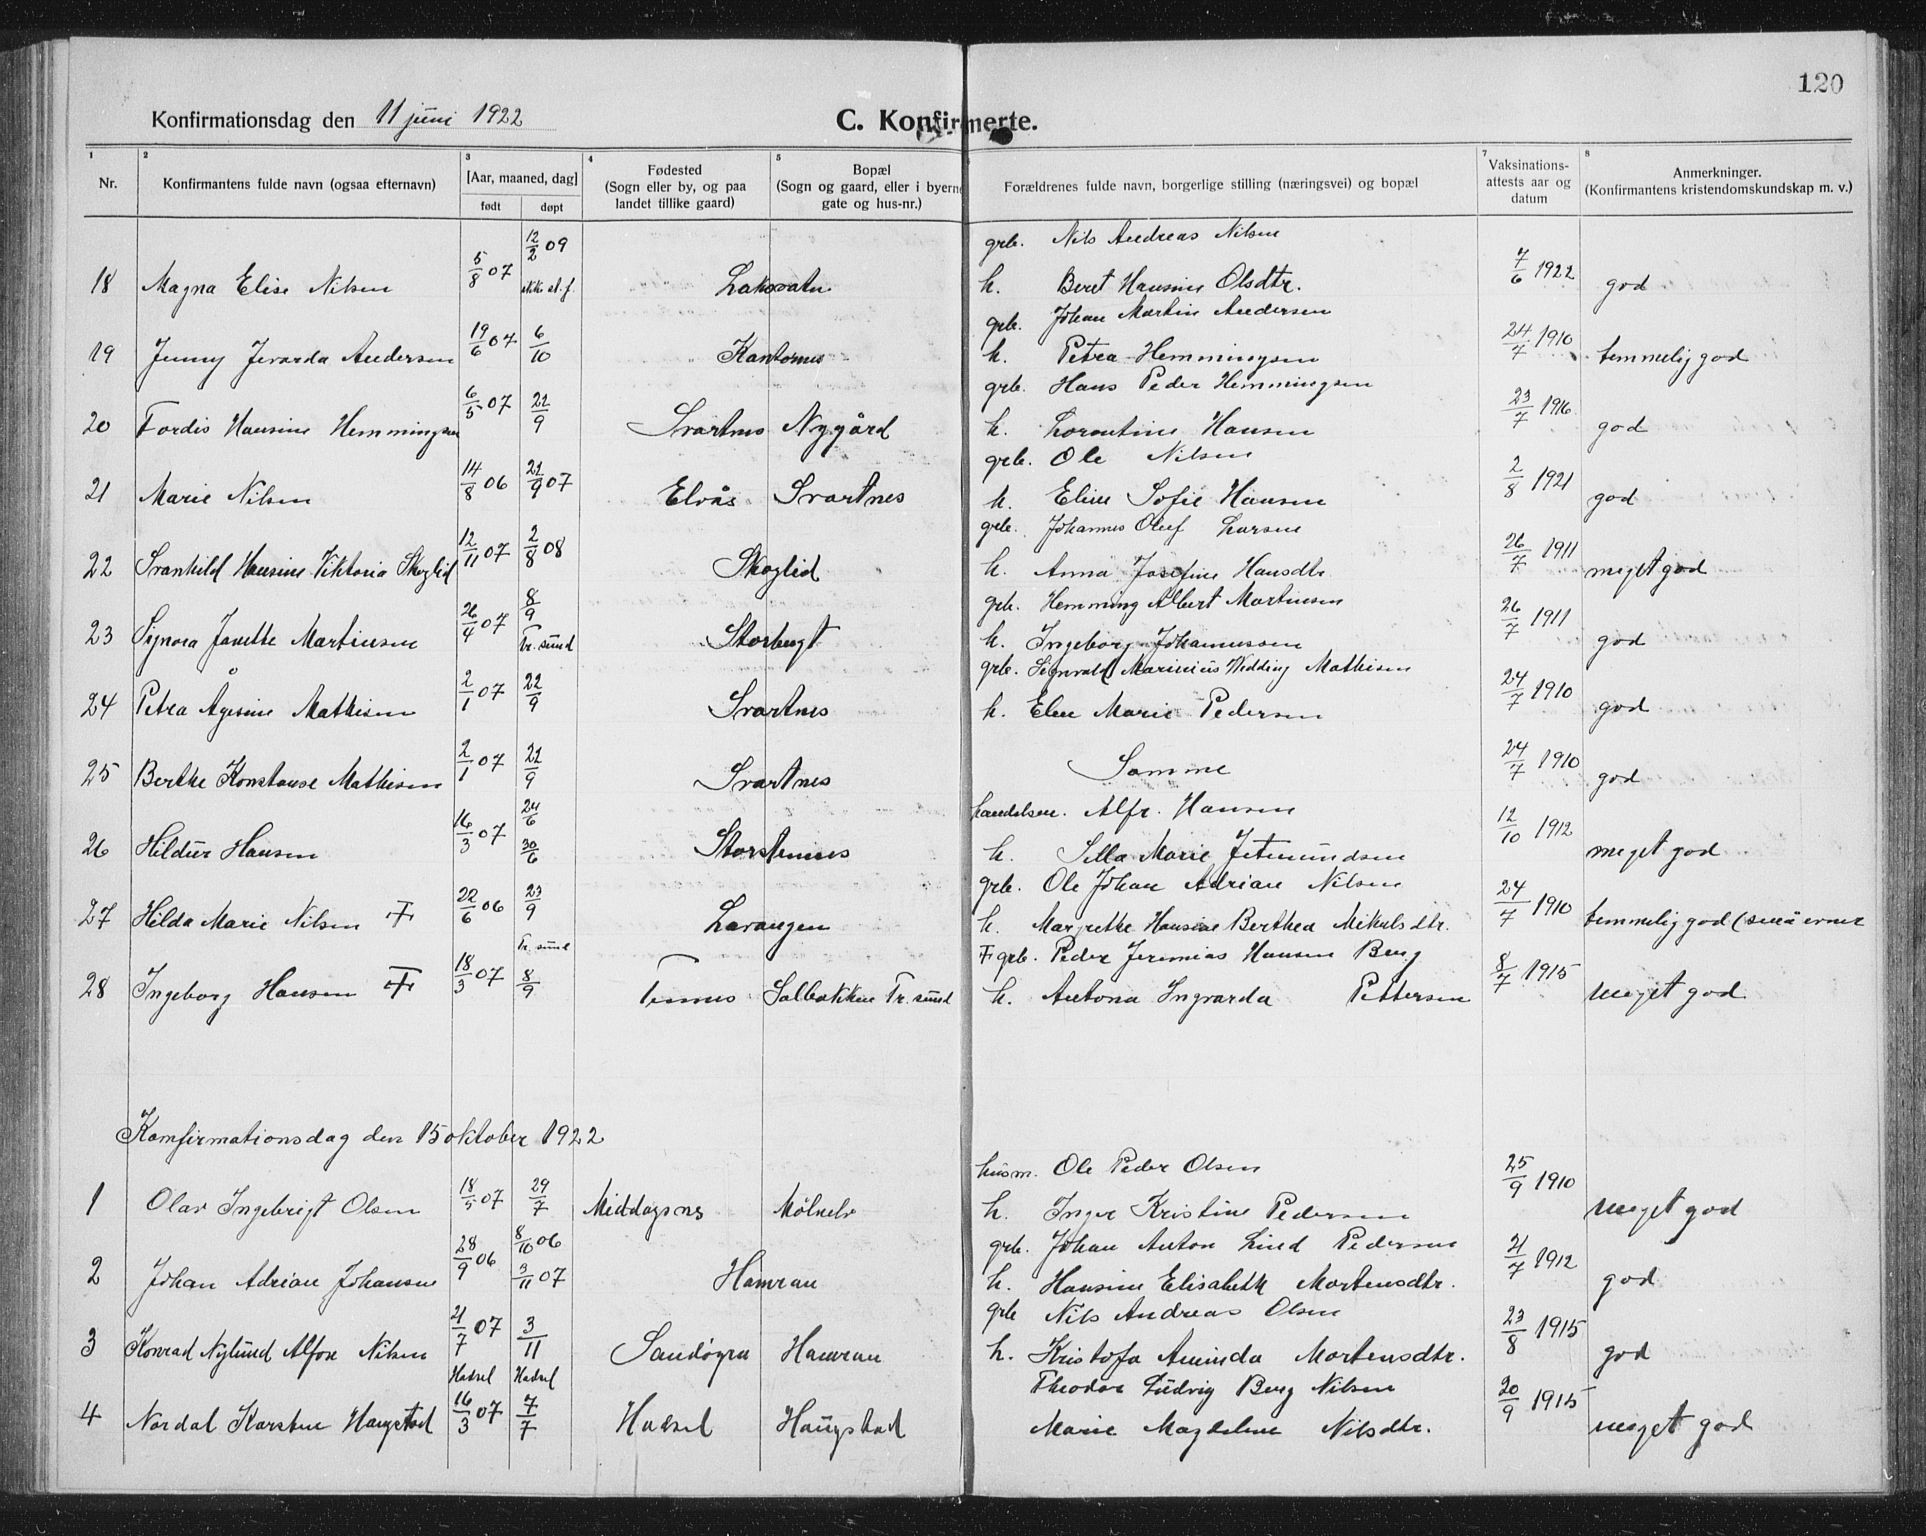 120
Konfirmationsdag den 11 juni 1922 C. Konfirmerte.
1 2 3 4 5 7 8
Nr. Konfirmantens fulde navn (ogsaa efternavn) [Aar, maaned, dag] født døpt Fødested (Sogn eller by, og paa landet tillike gaard) Bopæl (Sogn og gaard, eller i byerne gate og hus-nr.) Forældrenes fulde navn, borgerlige stilling (næringsvei) og bopæl Vaksinations-attests aar og datum Anmerkninger. (Konfirmantens kristendomskundskap m. v.)
12/2 09 grb. Nils Andreas Nilsen
18 Magna Elise Nilsen 5/8 07 Laksvatn h. Beret Hansine Olsdtr. 7/6 1922 god
grb. Johan Martin Andersen
19 Jenny Jevarda Andersen 19/6 07 6/10 Kantornes h. Petra Hemmingsen 24/7 1910 temmelig god
grb. Hans Peder Hemmingsen
20 Fordis Hansine Hemmingsen 6/5 07 22/9 Svartnes Nygård h. Lorentine Hansen 23/7 1916 god
grb. Ole Nilsen
21 Marie Nilsen 14/8 06 22/9 07 Elvås Svartnes h. Eline Sofie Hansen 2/8 1921 god
grb. Johannes Oluf Larsen
22 Svanhild Hansine Viktoria Skoglid 12/11 07 2/8 08 Skoglid h. Anna Josefine Hansdtr. 26/7 1911 meget god
8/9 grb. Hemming Albert Martinsen
23 Signora Janette Martinsen 26/4 07 Tr. sund Storbugt h. Ingeborg Johannessen 26/7 1911 god
grb. Signvald Marinius Wedding Mathisen
24 Petra Ågesine Mathisen 2/1 07 22/9 Svartnes h. Elen Marie Pedersen 24/7 1910 god
25 Berthe Konstanse Mathisen 2/1 07 22/9 Svartnes Samme 24/7 1910 god
24/6 handelsm. Alfr. Hansen
26 Hildur Hansen 16/3 07 30/6 Storstennes h. Silla Marie Jetmundsen 12/10 1912 meget god
grb. Ole Johan Adrian Nilsen
27 Hilda Marie Nilsen F 22/6 06 23/9 Lavangen h. Margrethe Hansine Berthea Mikalsdtr. 24/7 1910 temmelig god (små evner
Tr. sund F grb. Peder Jeremias Hansen Berg
28 Ingeborg Hansen F 18/3 07 8/9 Tennes Solbakken Tr. sund h. Antona Ingvarda Pettersen 8/7 1915 meget god
Konfirmationsdag den 15 oktober 1922
husm. Ole Peder Olsen
1 Olav Ingebrigt Olsen 18/5 07 29/7 Middagsnes Målselv h. Inger Kristine Pedersen 25/9 1910 meget god
8/10 06 grb. Johan Anton Lind Pedersen
2 Johan Adrian Johansen 28/9 06 3/11 07 Hamran h. Hansine Elisabeth Mortensdtr. 21/7 1912 god
grb Nils Andreas Olsen
3 Konrad Nylund Alfon Nilsen 21/7 07 3/11 Sandøyra Hamran h. Kristofa Aminda Mortensdtr. 23/8 1915 god
Hadsel Hadsel Theodor Ludvig Berg Nilsen
4 Nordal Karsten Haugstad 16/3 07 7/7 Hadsel Haugstad Marie Magdelene Nilsdtr. 20/9 1915 meget god